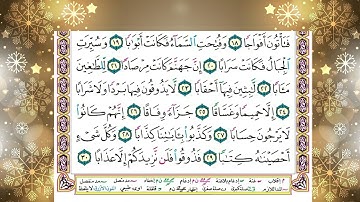 فَتَأْتُونَ أَفْوَاجًا ١٨ وَفُتِحَتِ السَّمَاءُ فَكَانَتْ أَبْوَابًا ١٩ وَسُيِّرَتِ
الْجِبَالُ فَكَانَتْ سَرَابًا ٢٠ إِنَّ جَهَنَّمَ كَانَتْ مِرْصَادًا ٢١ لِلطَّاغِينَ
مَآبًا ٢٢ لَابِثِينَ فِيهَا أَحْقَابًا ٢٣ لَا يَذُوقُونَ فِيهَا بَرْدًا وَلَا شَرَابًا
٢٤ إِلَّا حَمِيمًا وَغَسَّاقًا ٢٥ جَزَاءً وِفَاقًا ٢٦ إِنَّهُمْ كَانُوا
لَا يَرْجُونَ حِسَابًا ٢٧ وَكَذَّبُوا بِآيَاتِنَا كِذَّابًا ٢٨ وَكُلَّ شَيْءٍ
أَحْصَيْنَاهُ كِتَابًا ٢٩ فَذُوقُوا فَلَنْ نَزِيدَكُمْ إِلَّا عَذَابًا ٣٠